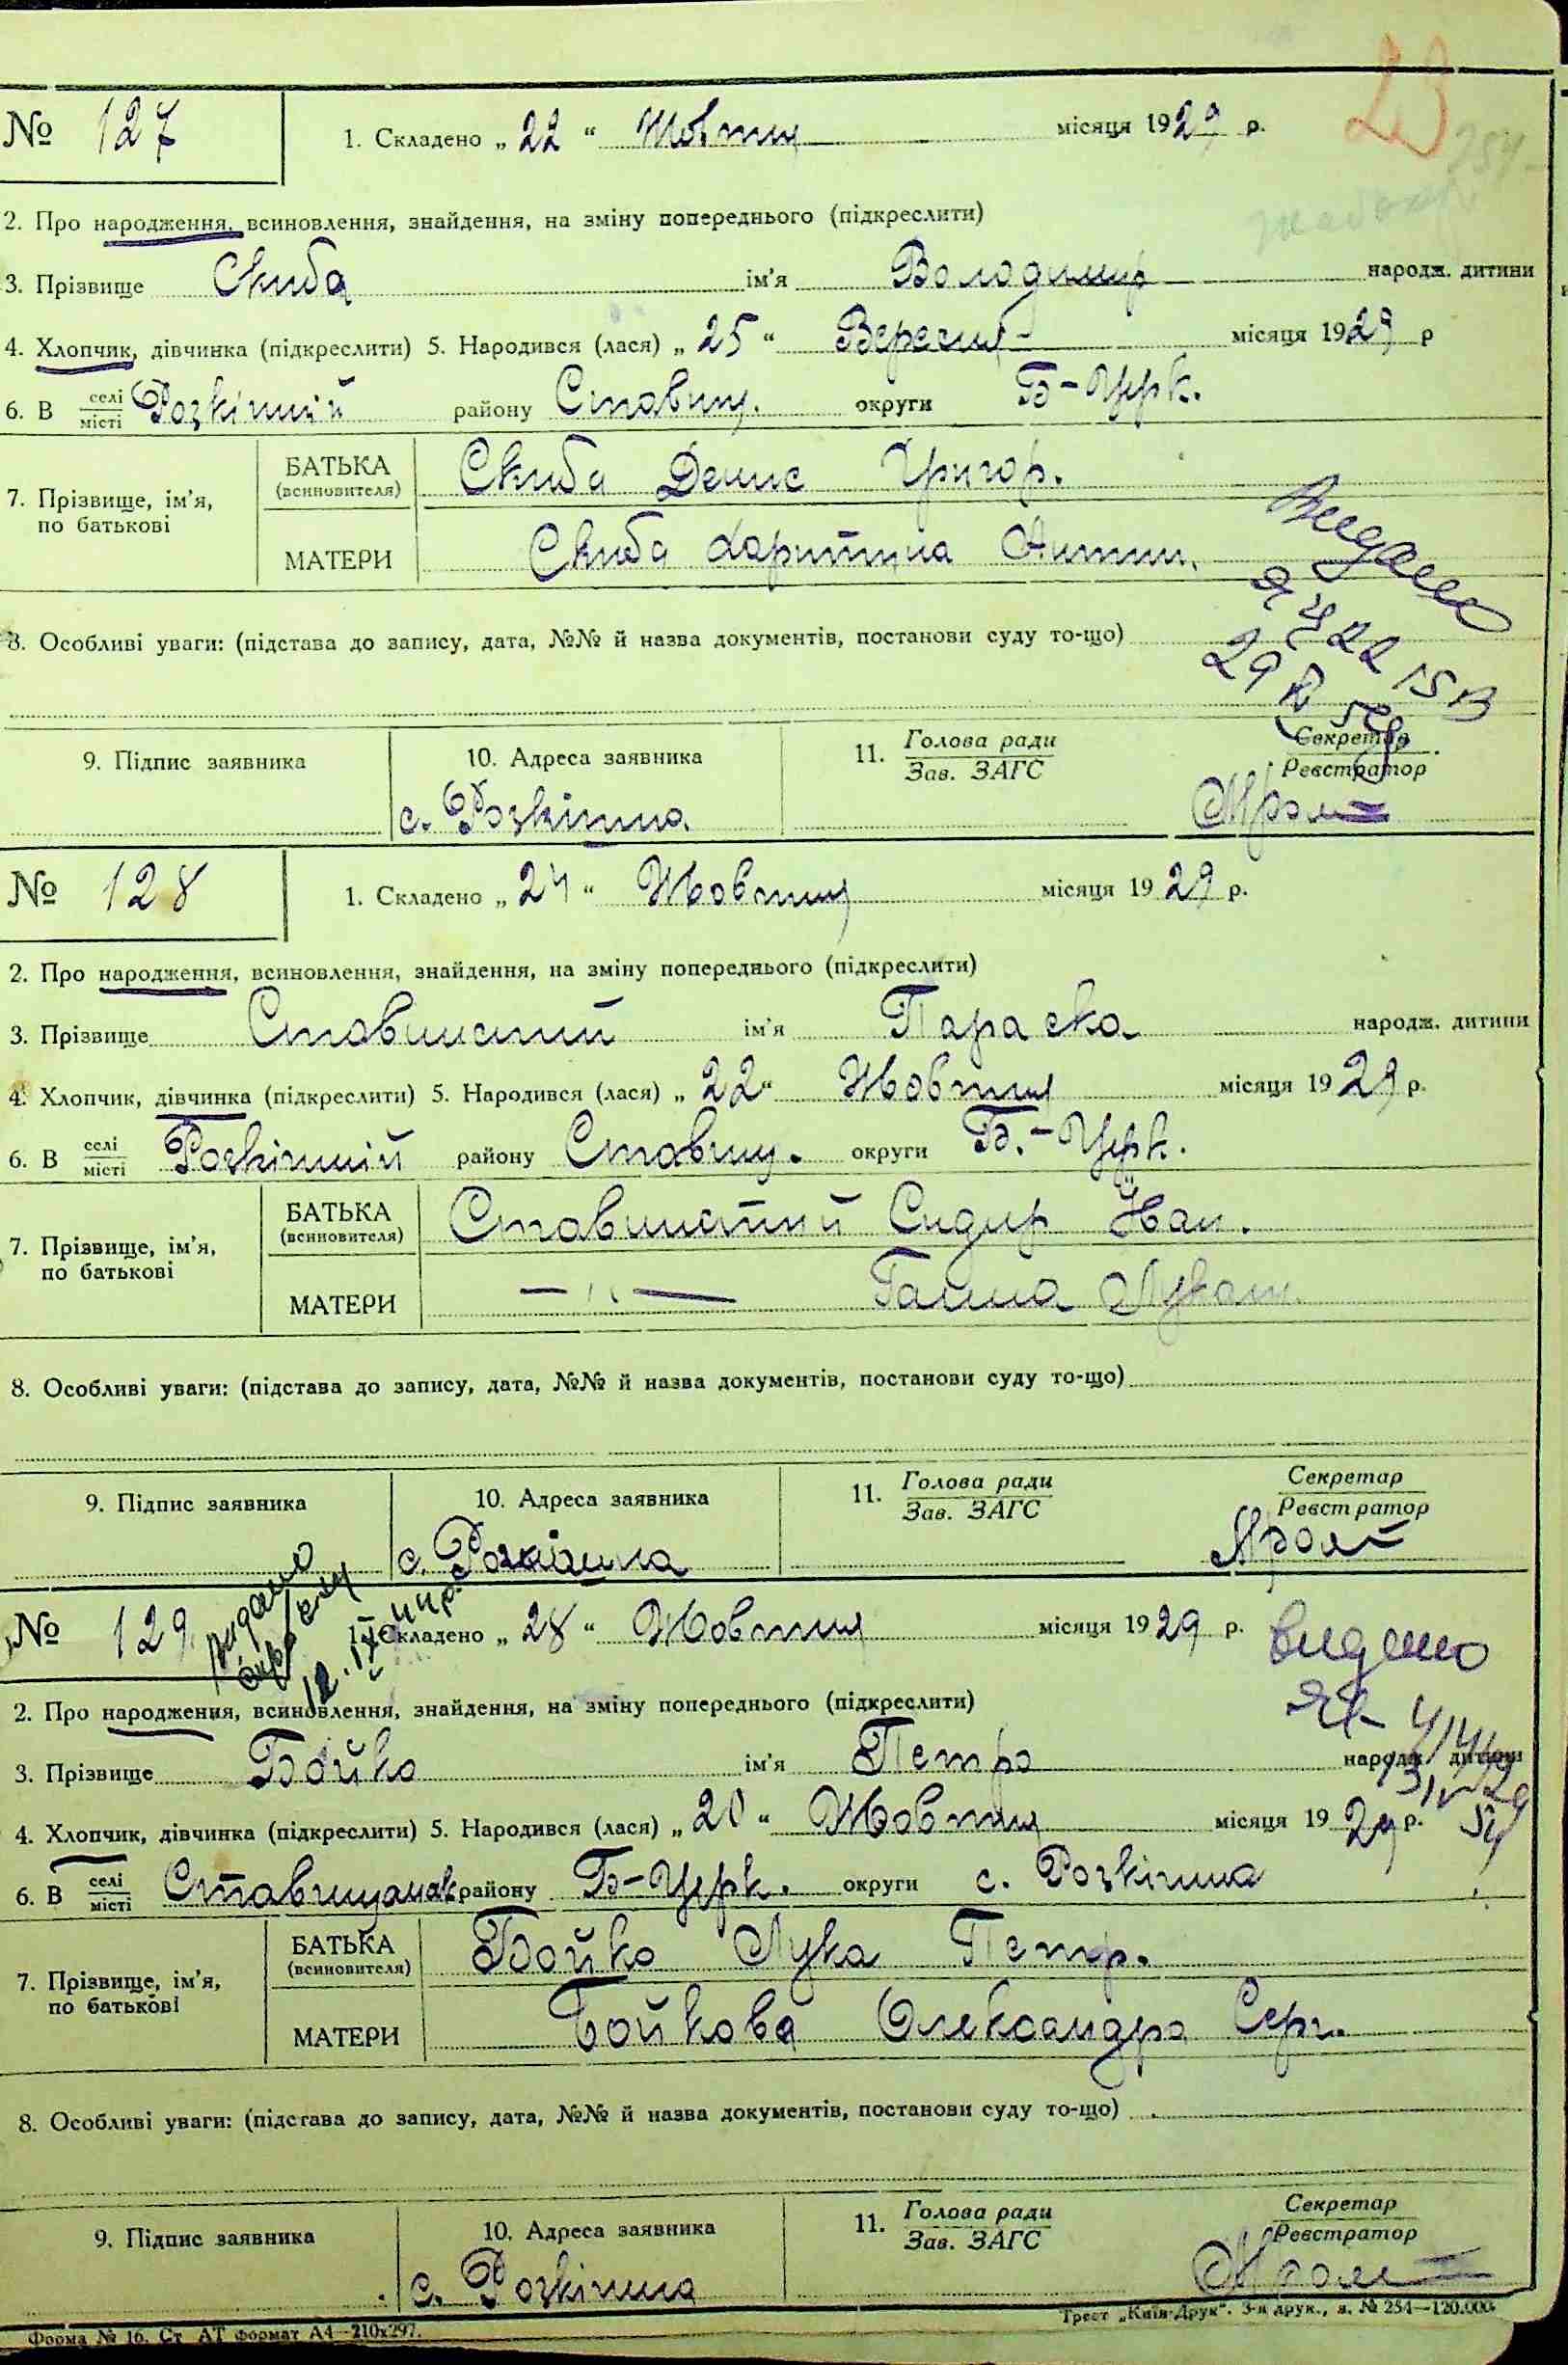 23
№ 127
1. Складено „22“ Жовтня місяця 1929 р.
2. Про народження, всиновлення, знайдення, на зміну попереднього (підкреслити)
3. Прізвище Скиба ім'я Володимир народж. дитини
4. Хлопчик, дівчинка (підкреслити) 5. Народився (лася) „25“ Вересня місяця 1929 р
6. В селі/місті Розкішній району Ставищ. округи Б-Церк.
7. Прізвище, ім'я, по батькові
БАТЬКА (всиновителя) Скиба Денис Григор.
МАТЕРИ Скиба Харитина Антин.
Видано
8. Особливі уваги: (підстава до запису, дата, №№ й назва документів, постанови суду то-що)
9. Підпис заявника
10. Адреса заявника
с. Розкішна
11. Голова ради/Зав. ЗАГС
Секретар/Реєстратор
№ 128
1. Складено „24“ Жовтня місяця 1929 р.
2. Про народження, всиновлення, знайдення, на зміну попереднього (підкреслити)
3. Прізвище ім'я Параска народж. дитини
4. Хлопчик, дівчинка (підкреслити) 5. Народився (лася) „22“ Жовтня місяця 1929 р.
6. В селі/місті Розкішній району Ставищ. округи Б.-Церк.
7. Прізвище, ім'я, по батькові
БАТЬКА (всиновителя) Сидір Іван.
МАТЕРИ —〃— Ганна Лукаш.
8. Особливі уваги: (підстава до запису, дата, №№ й назва документів, постанови суду то-що)
9. Підпис заявника
10. Адреса заявника
с. Розкішна
11. Голова ради/Зав. ЗАГС
Секретар/Реєстратор
№ 129
видано
1. Складено „28“ Жовтня місяця 1929 р.
видано
2. Про народження, всиновлення, знайдення, на зміну попереднього (підкреслити)
3. Прізвище Бойко ім'я Петро народж. дитини
4. Хлопчик, дівчинка (підкреслити) 5. Народився (лася) „20“ Жовтня місяця 1929 р.
6. В селі/місті району Б-Церк. округи с. Розкішна
7. Прізвище, ім'я, по батькові
БАТЬКА (всиновителя) Бойко Лука Петр.
МАТЕРИ Бойкова Олександра Серг.
8. Особливі уваги: (підстава до запису, дата, №№ й назва документів, постанови суду то-що)
9. Підпис заявника
10. Адреса заявника
с. Розкішна
11. Голова ради/Зав. ЗАГС
Секретар/Реєстратор
Форма № 16. Ст. АТ формат А4—210x297.
Трест „Київ-Друк“. 3-я друк., з. № 254—120.000.